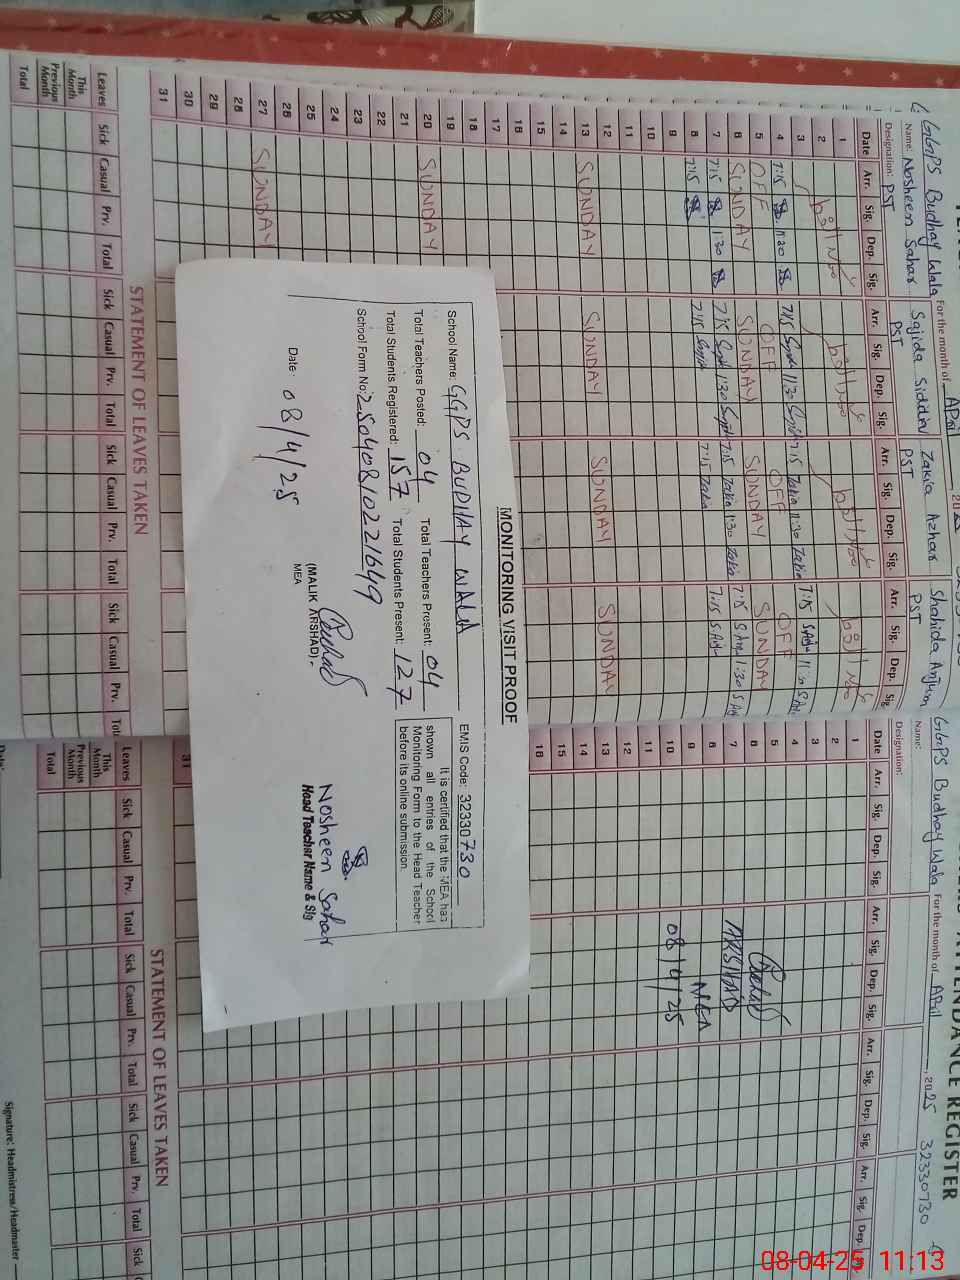 GGPS Budhay Wala For the month of April 2025
Name: Nosheen Sahar Sajida Zakia Azhar Shahida Anjum
Designation: PST PST PST PST
Date Arr. Sig. Dep. Sig. Arr. Sig. Dep. Sig. Arr. Sig. Dep. Sig. Arr. Sig. Dep. Sig.
1
2
3
4 7:15 11:30 7:15 11:30 7:15 Zakia 11:30 Zakia 7:15
5 OFF OFF OFF OFF
6 SUNDAY SUNDAY SUNDAY SUNDAY
7 7:15 1:30 7:15 1:30 7:15 Zakia 1:30 Zakia 7:15 1:30
8 7:15 7:15 7:15 Zakia 7:15
9
10
11
12
13 SUNDAY SUNDAY SUNDAY SUNDAY
14
15
16
17
18
19
20 SUNDAY
21
22
23
24
25
26
27 SUNDAY
28
29
30
31
Leaves Sick Casual Prv. Total Sick Casual Prv. Total Sick Casual Prv. Total Sick Casual Prv.
This Month
Previous Month
Total
STATEMENT OF LEAVES TAKEN
MONITORING VISIT PROOF
School Name: GGPS BUDHAY WALA EMIS Code: 32330730
Total Teachers Posted: 04 Total Teachers Present: 04
Total Students Registered: 157 Total Students Present: 127
School Form No: 2504081021649
It is certified that the MEA has
shown all entries of the School
Monitoring Form to the Head Teacher
before its online submission.
Date: 08/4/25
(MALIK ARSHAD)
MEA
Nosheen Sahar
Head Teacher Name & Sig
ATTENDANCE REGISTER
GGPS Budhay Wala For the month of April, 2025 32330730
Name:
Designation:
Date Arr. Sig. Dep. Sig. Arr. Sig. Dep. Sig. Arr. Sig. Dep. Sig. Arr. Sig. Dep.
1
2
3
4
5
6
7
8
9
10
11
12
13
14
15
16
31
ARSHAD
MEA
08/4/25
Leaves Sick Casual Prv. Total Sick Casual Prv. Total Sick Casual Prv. Total Sick
This Month
Previous Month
Total
STATEMENT OF LEAVES TAKEN
Signature: Headmistress/Headmaster
08-04-25 11:13